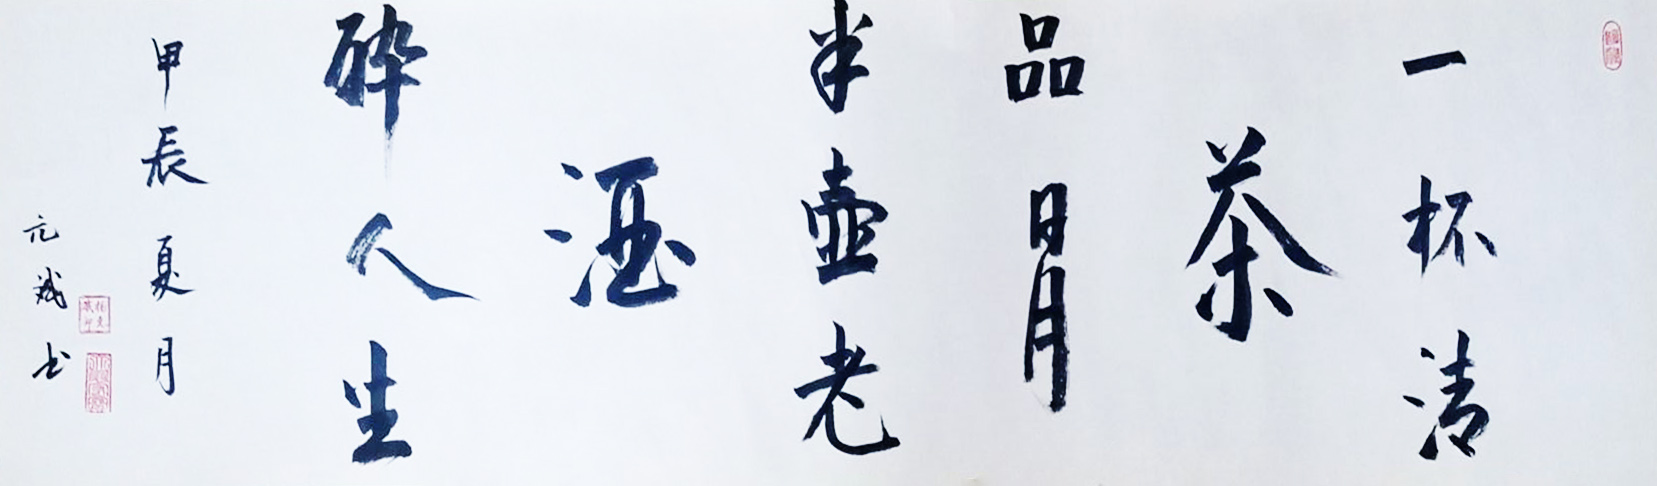 一杯清
茶
品日月
半壶老
酒
醉人生
甲辰夏月
元斌书